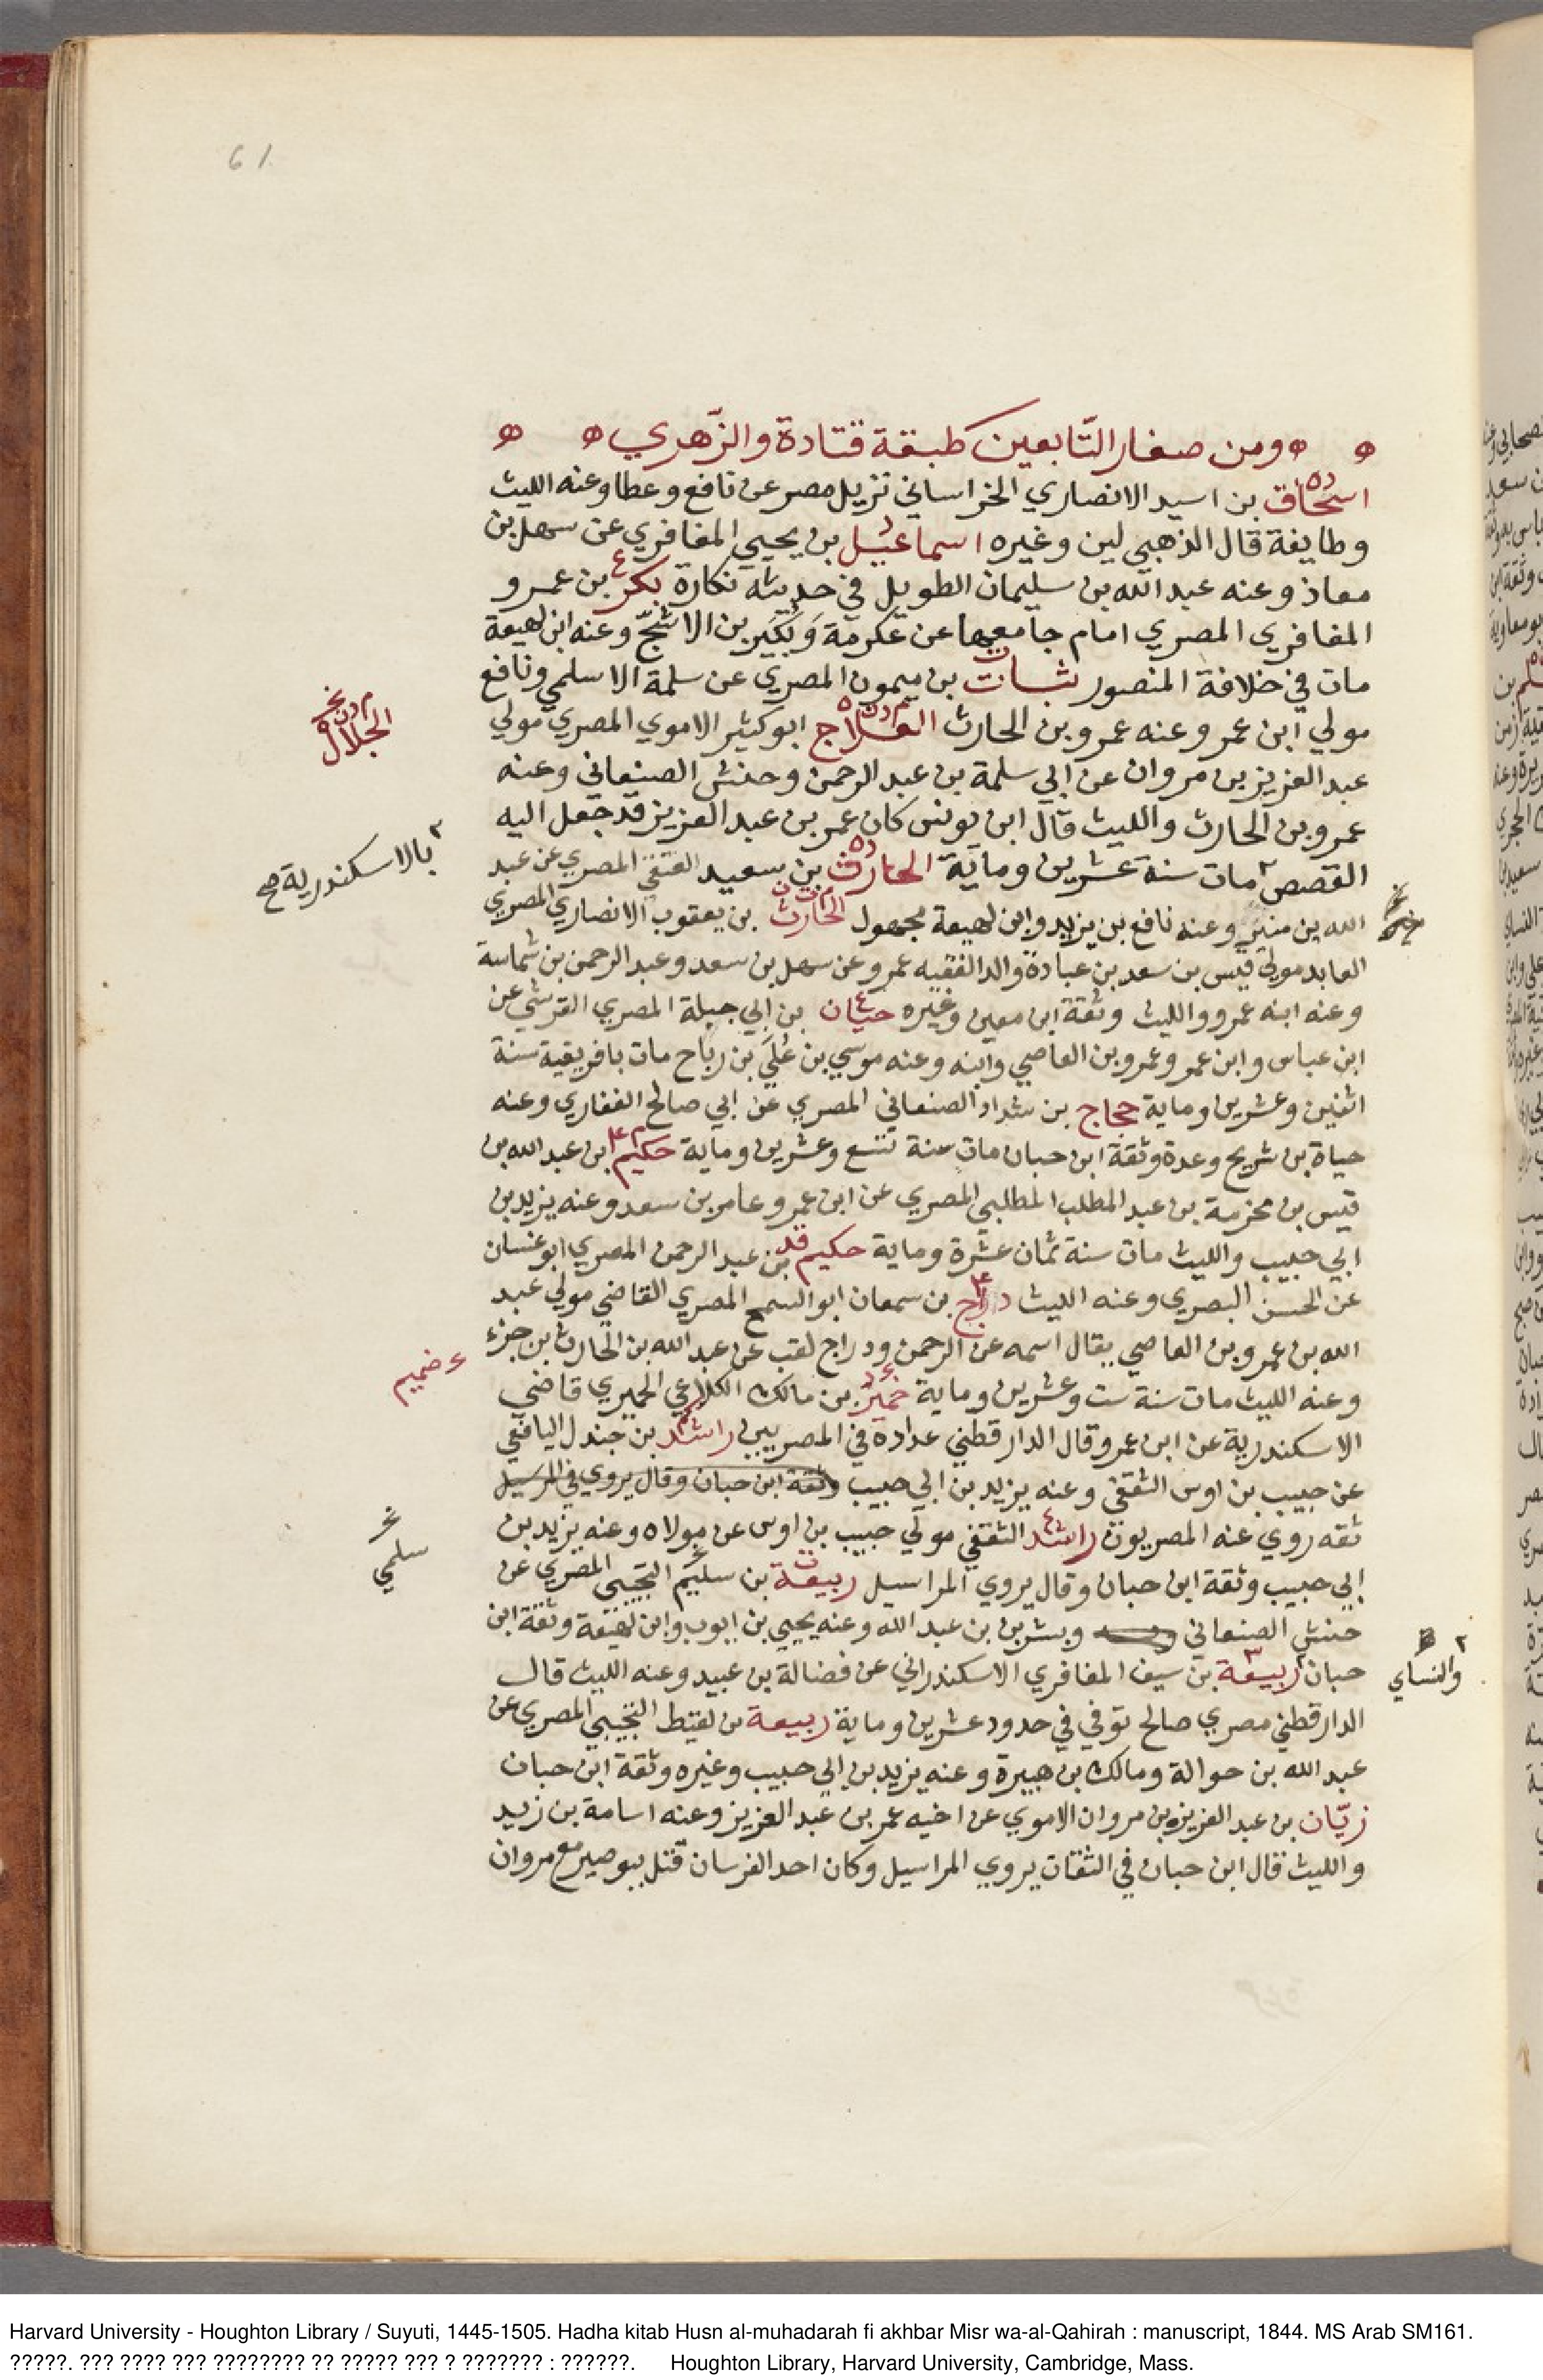 61
ه ه ومن صغار التّابعين كطبقة قتادة والزّهري ه ه
اسحاق بن اسيد الانصاري الخراساني نزيل مصر عن نافع وعطا وعنه الليث
وطايفة قال الذهبي لين وغيره اسماعيل بن يحيي المغافري عن سهل بن
معاذ وعنه عبد الله بن سليمان الطويل في حديثه نكارة بكر بن عمرو
المغافري المصري امام جامعها عن عكرمة وبكير بن الاشج وعنه ابن لهيعة
مات في خلافة المنصور ثبات بن ميمون المصري عن سلمة الاسلمي ونافع
مولي ابن عمر وعنه عمرو بن الحارث ابو كثير الاموي المصري مولي
الجلال
عبد العزيز بن مروان عن ابي سلمة بن عبد الرحمن وحنش الصنعاني وعنه
عمرو بن الحارث والليث قال ابن يونس كان عمر بن عبد العزيز قد جعل اليه
القصص ٢ مات سنة عشرين وماية الحارث بن سعيد العتقي المصري عن عبد
٢ بالاسكندرية صح
الله بن منير وعنه نافع بن يزيد وابن لهيعة مجهول الحارث بن يعقوب الانصاري المصري
العابد مولي قيس بن سعد بن عبادة والد الفقيه عمرو عن سهل بن سعد وعبد الرحمن بن شماسة
وعنه ابنه عمرو والليث وثقة ابن معين وغيره حيان بن ابي جبلة المصري القرشي عن
ابن عباس وابن عمر وعمرو بن العاصي وابنه وعنه موسي بن علي بن رباح مات بافريقية سنة
اثنين وعشرين وماية حجاج بن شداد الصنعاني المصري عن ابي صالح الغفاري وعنه
حياة بن شريح وعدة وثقة ابن حبان مات سنة تسع وعشرين وماية حكيم ابن عبد الله بن
قيس بن مخرمة بن عبد المطلب المطلبي المصري عن ابن عمر وعامر بن سعد وعنه يزيد بن
ابي حبيب والليث مات سنة ثمان عشرة وماية حكيم بن عبد الرحمن المصري ابو غسان
عن الحسن البصري وعنه الليث دراج بن سمعان ابو السمح المصري القاضي مولي عبد
الله بن عمرو بن العاصي يقال اسمه عن الرحمن ودراج لقب عن عبد الله بن الحارث بن جزء
وعنه الليث مات سنة ست وعشرين وماية خمير بن مالك الكلاعي الحميري قاضي
ضميم
الاسكندرية عن ابن عمر وقال الدارقطني عداده في المصريين راشد بن جندل اليافعي
عن حبيب بن اوس الثقفي وعنه يزيد بن ابي حبيب وثقة ابن حبان وقال يروي في المراسيل
ثقه روي عنه المصريون راشد الثقفي مولي حبيب بن اوس عن مولاه وعنه يزيد بن
سلمي
ابي حبيب وثقة ابن حبان وقال يروي المراسيل ربيعة بن سليم التجيبي المصري عن
حنش الصنعاني وبشر بن بن عبد الله وعنه يحيي بن ايوب وابن لهيعة وثقة ابن
حبان ربيعة بن سيف المغافري الاسكندراني عن فضالة بن عبيد وعنه الليث قال
٢ والنساي
الدارقطني مصري صالح توفي في حدود عشرين وماية ربيعة بن لقيط التجيبي المصري عن
عبد الله بن حوالة ومالك بن هبيرة وعنه يزيد بن ابي حبيب وغيره وثقة ابن حبان
زبّان بن عبد العزيز بن مروان الاموي عن اخيه عمر بن عبد العزيز وعنه اسامة بن زيد
والليث قال ابن حبان في الثقات يروي المراسيل وكان احد الفرسان قتل ببوصير مع مروان
Harvard University - Houghton Library / Suyuti, 1445-1505. Hadha kitab Husn al-muhadarah fi akhbar Misr wa-al-Qahirah : manuscript, 1844. MS Arab SM161.
?????. ??? ???? ??? ???????? ?? ????? ??? ? ??????? : ??????. Houghton Library, Harvard University, Cambridge, Mass.